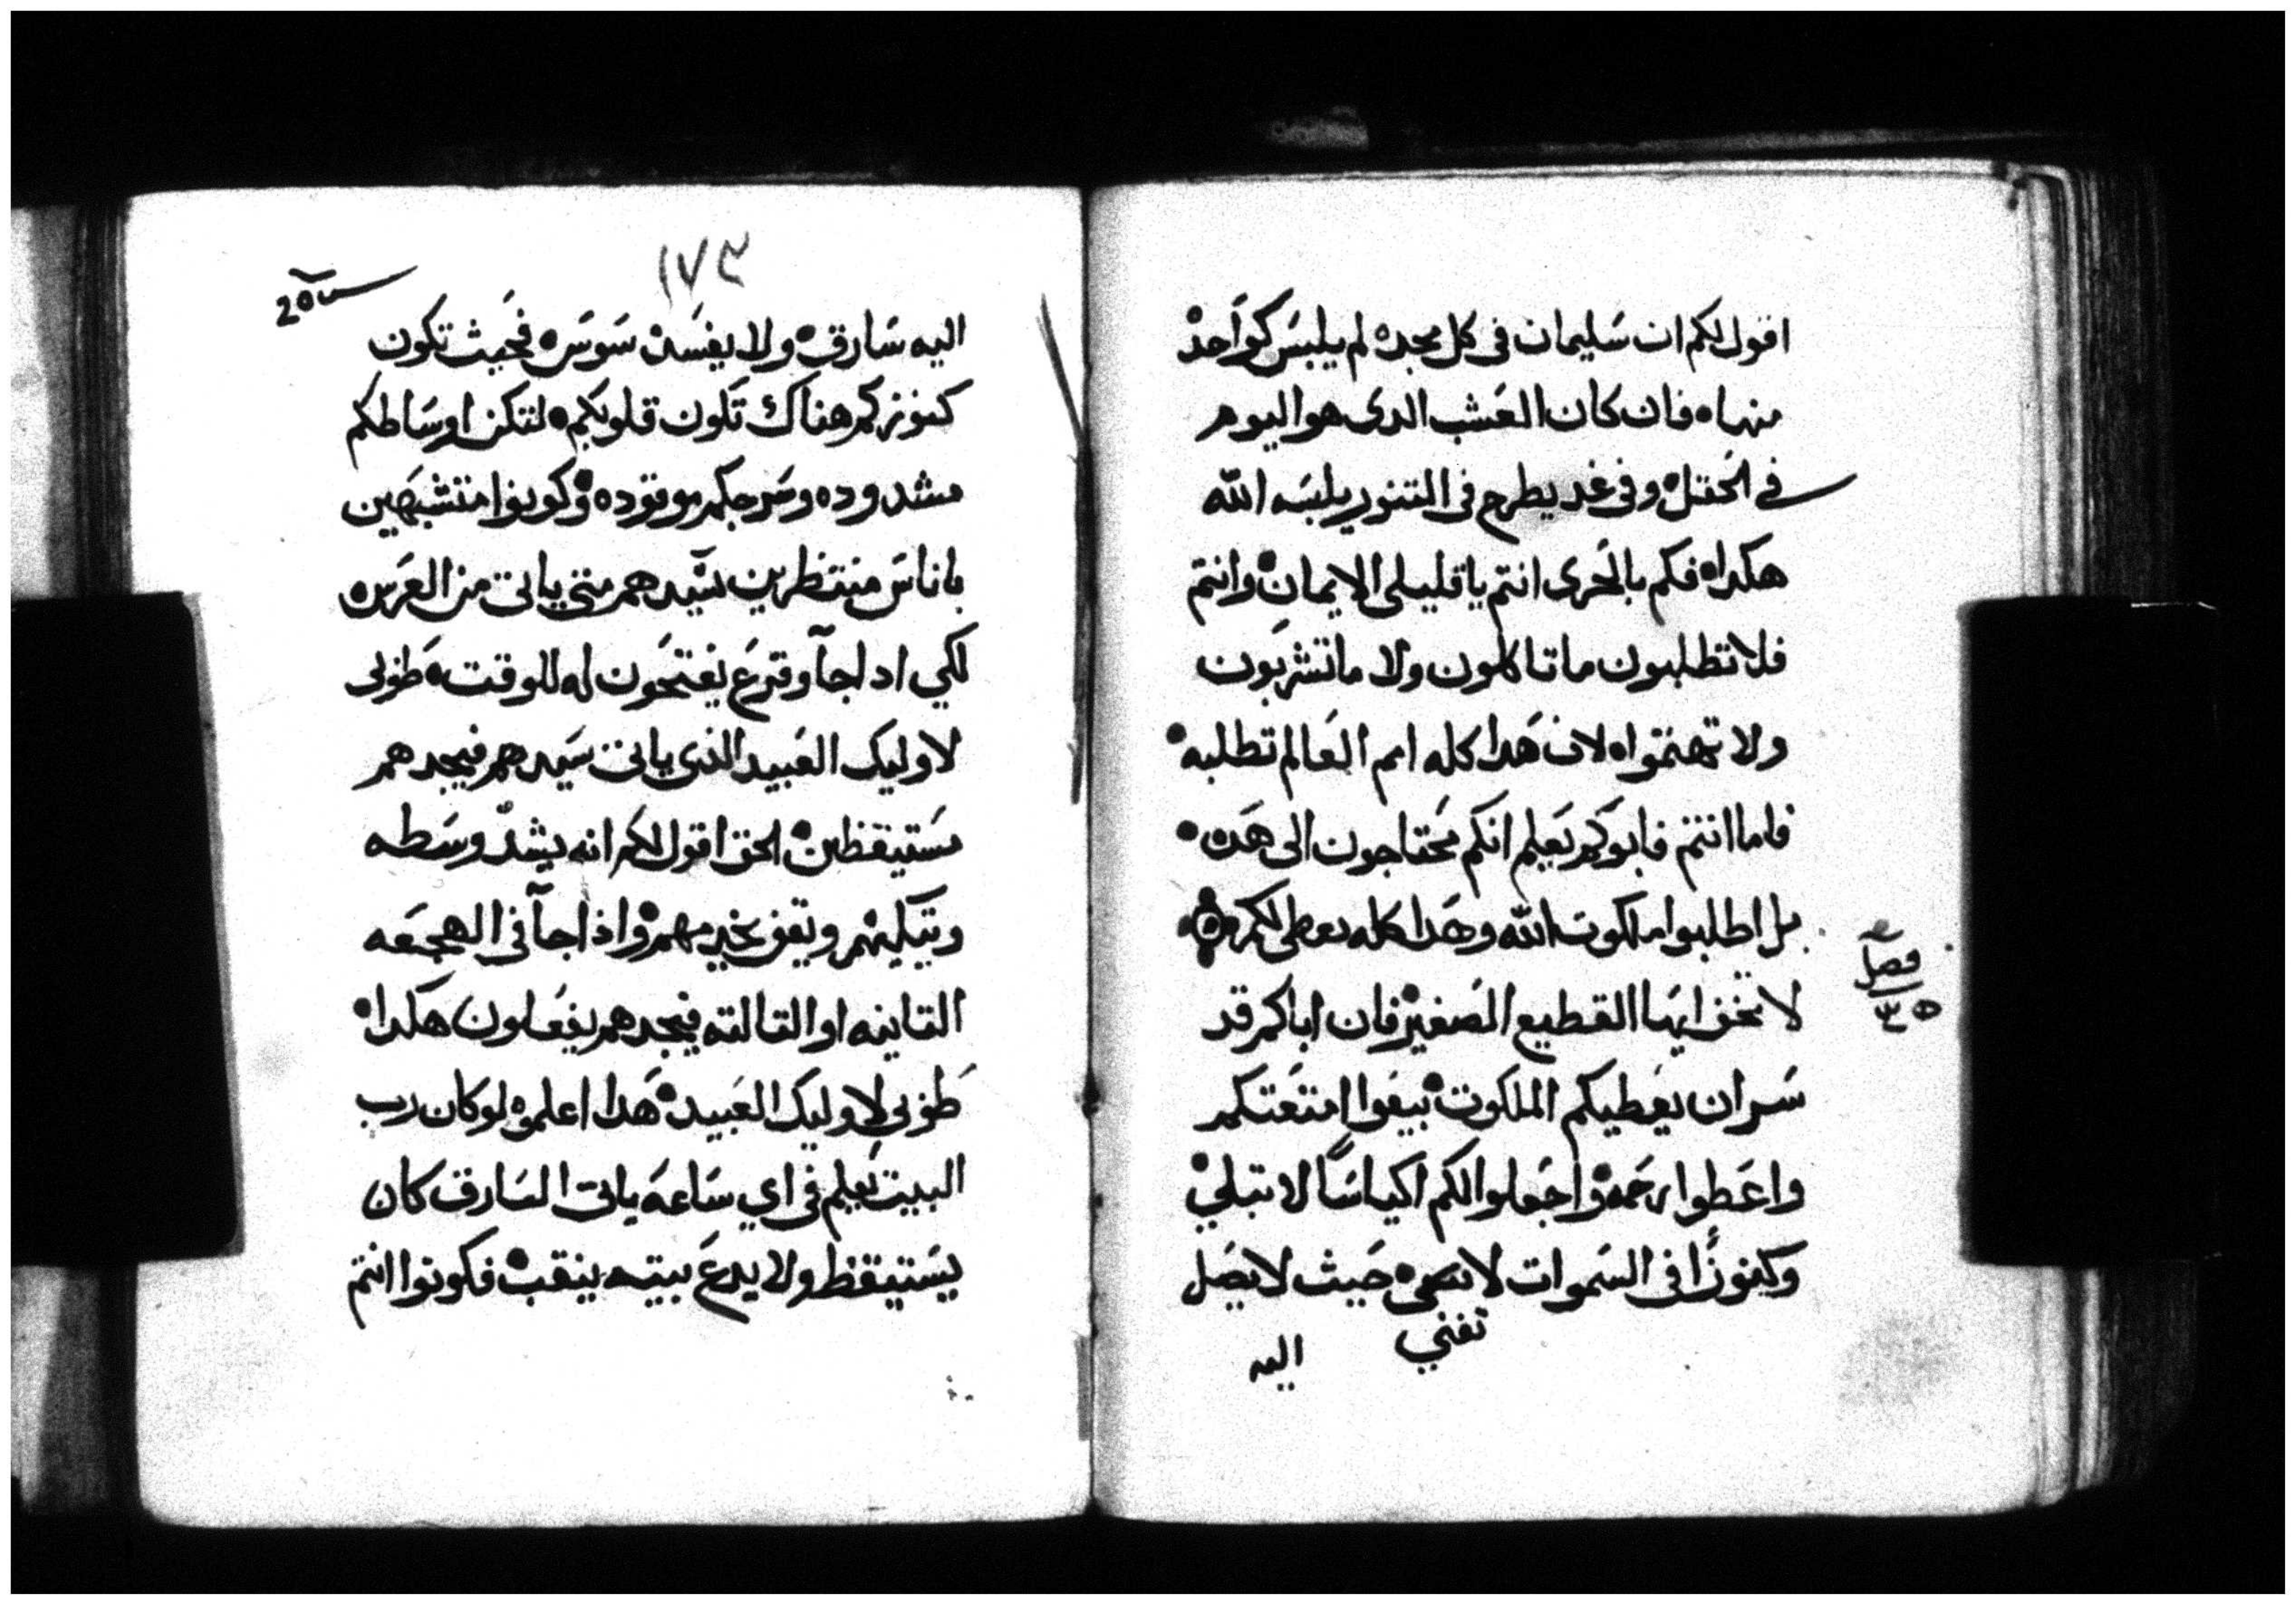 اقول لكم ان سليمان فى كل مجده لم يلبس كواحده
منها ه فان كان العشب الدى هو اليوم
فى الحقل ه وفى غد يطرح فى التنور يلبسه الله
هكدا ه فكم بالحرى انتم يا قليلى الايمان ه وانتم
فلا تطلبون ما تاكلون ولا ما تشربون
ولا تهتموا ه لان هدا كله امم العالم تطلبه ه
فاما انتم فابوكم يعلم انكم محتاجون الى هده ه
بل اطلبوا ملكوت الله وهدا كله يعطى لكم
فصل
٣٥
لا تخف ايها القطيع الصغير ه فان اباكم قد
سر ان يعطيكم الملكوت ه بيعوا امتعتكم
واعطوا رحمه ه واجعلوا لكم اكياسًا لا تبلي ه
وكنوزًا فى السموات لا تفنى ه حيث لا يصل
تفني
اليه
١٧٣
اليه سارق ه ولا يفسده سوس ه فحيث تكون
كنوزكم هناك تكون قلوبكم ه لتكن اوساطكم
مشدوده وسرجكم موقوده ه وكونوا متشبهين
باناس منتظرين سيدهم متي ياتى من العرس ه
لكي ادا جآ وقرع يفتحون له للوقت ه طوبى
لاوليك العبيد الذى ياتى سيدهم فيجدهم
مستيقظين ه الحق اقول لكم انه يشد وسطه
ويتكيهم ويقف يخدمهم ه واذا جآ فى الهجعه
التانيه او التالته فيجدهم يفعلون هكدا ه
طوبى لاوليك العبيد ه هدا اعلموه لو كان رب
البيت يعلم فى اي ساعه ياتى السارق كان
يستيقظ ولا يدع بيته ينقب ه فكونوا انتم